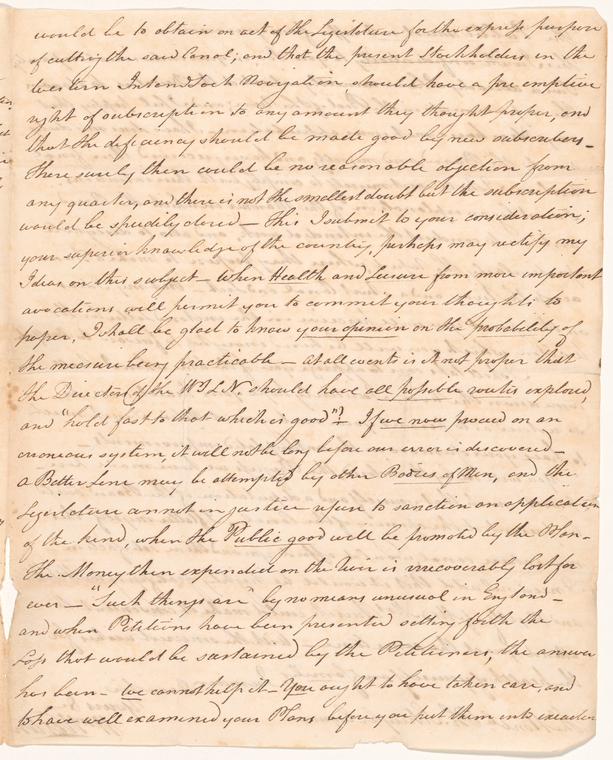 would be to obtain an act of the Legislature for the express purpose
of cutting the said Canal; and that the present Stockholders in the
Western Inland Lock Navigation, should have a pre emptive
right of subscription to any amount they thought proper, and
that the deficiency should be made good by new subscribers_
There surely then could be no reasonable objection from
any quarter, and there is not the smallest doubt but the subscription
would be speedily closed — This I submit to your consideration;
your superior knowledge of the country, perhaps may rectify my
Ideas on this subject — when Health and Leisure from more important
avocations will permit you to commit your thoughts to
paper, I shall be glad to know your opinion on the probability of
the measure being practicable — at all events is it not proper that
the Directors of the W I L N. should have all possible routes explored,
and "hold fast to that which is good"? If we now proceed on an
erroneous system, it will not be long before our error is discovered_
a Better Line may be attempted by other Bodies of Men, and the
Legislature cannot in justice refuse to sanction an application
of the kind, when the Public good will be promoted by the Plan_
The Money then expended on the is irrecoverably lost for
ever — "Such things are" by no means unusual in England_
and when Petitions have been presented setting forth the
Loss that would be sustained by the Petitioners, the answer
has been — we cannot help it — You ought to have taken care, and
to have well examined your Plans before you put them into execution